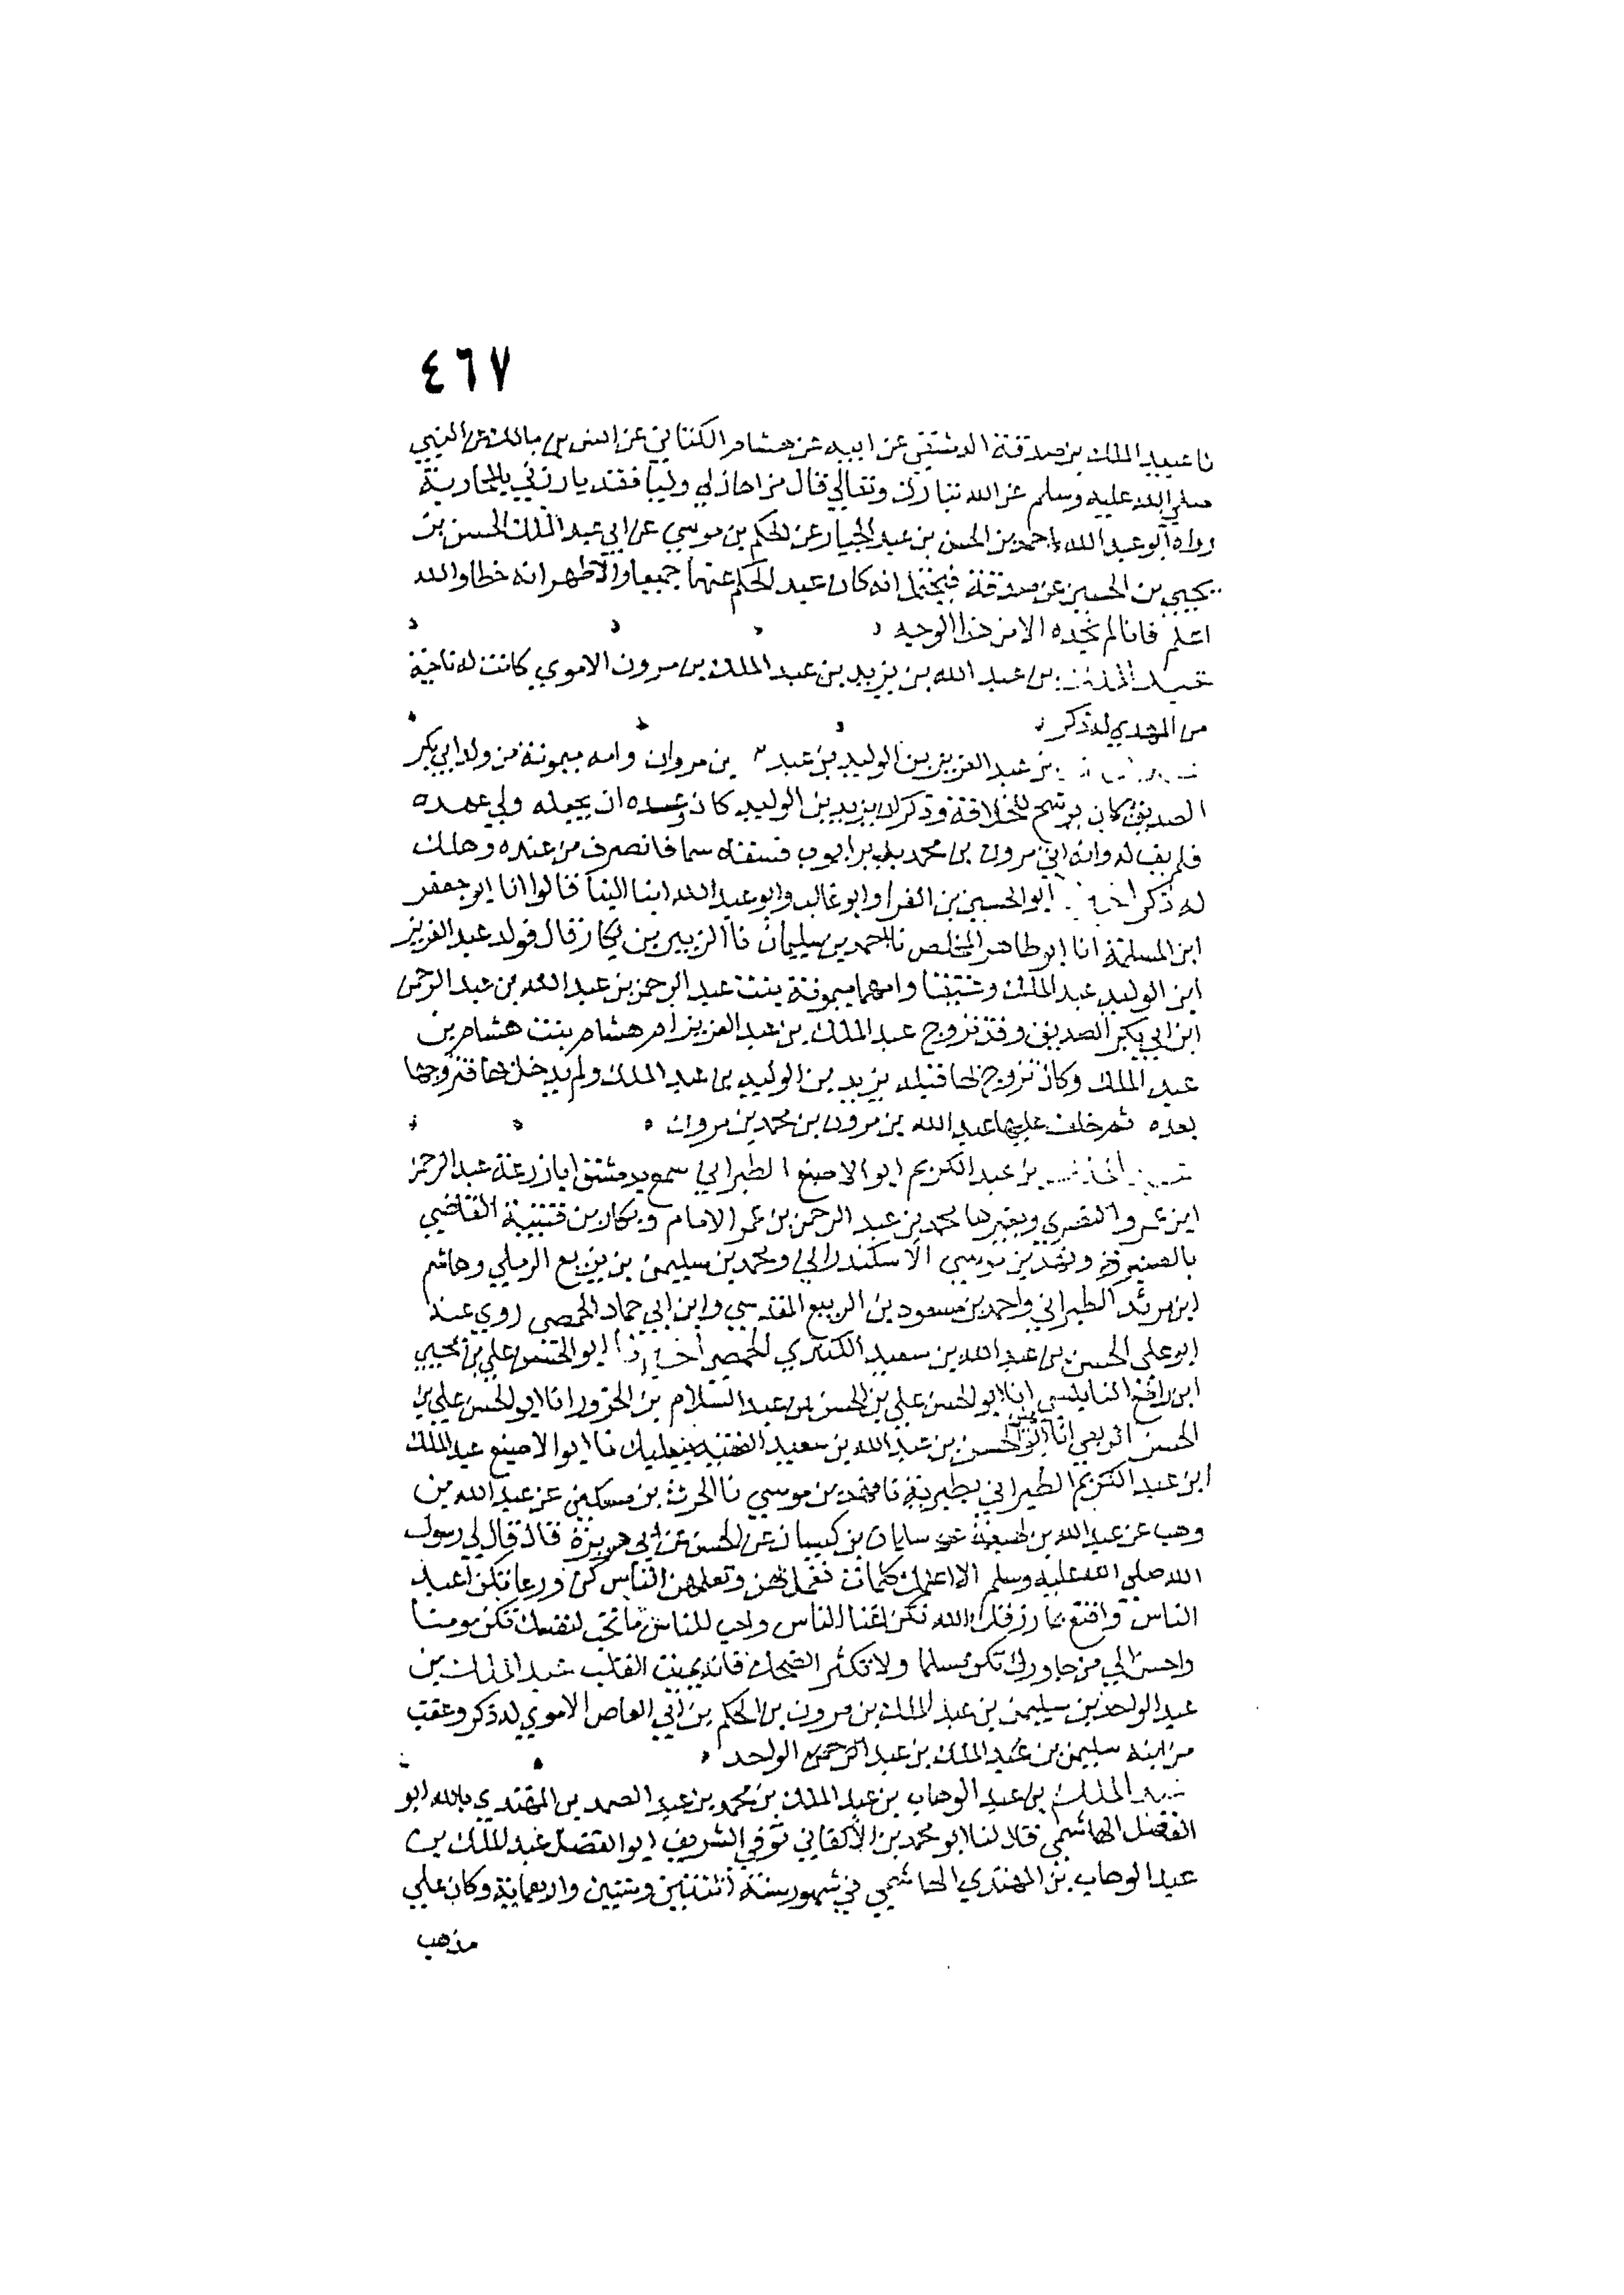 ٤٦٧
نا عبد الملك بن صدقة الدمشقي عن ابيه عن هشام الكناني عن انس بن مالك عن النبي
صلى الله عليه وسلم عن الله تبارك وتعالى قال من اهان لي وليا فقد بارزني بالمحاربة
رواه ابو عبد الله احمد بن الحسن بن عبد الجبار عن الحكم بن موسي عن ابي عبد الملك الحسن بن
يحيي بن الحسين عن صدقة فيحتمل انه كان عبد الحكم عنهما جميعا والاظهر انه خطا والله
اعلم فانا لم نجده الا من هذا الوجه
عبد الملك بن عبد الله بن يزيد بن عبد الملك بن مرون الاموي كانت له ناحية
من المهدي له ذكر
بن عبد العزيز بن الوليد بن عبد بن مروان وامه ميمونة من ولد ابي بكر
الصديق كان يرشح للخلافة وذكر ان يزيد بن الوليد كان وعده ان يجعله ولي عهده
فلم يف له وانه اتي مرون بن محمد بدير ايوب فسقاه سما فانصرف من عنده وهلك
له ذكر ابو الحسين بن الفرا وابو غالب وابو عبد الله ابنا البنا قالوا انا ابو جعفر
ابن المسلمة انا ابو طاهر المخلص نا احمد بن سليمان نا الزبير بن بكار قال فولد عبد العزيز
ابن الوليد عبد الملك وعتيقا وامهما ميمونة بنت عبد الرحمن بن عبد الله بن عبد الرحمن
ابن ابي بكر الصديق وقد تزوج عبد الملك بن عبد العزيز ام هشام بنت هشام بن
عبد الملك وكان تزوجها قبله يزيد بن الوليد بن عبد الملك ولم يدخل بها فتزوجها
بعده ثم خلف عليها عبد الله بن مرون بن محمد بن مروان
بن عبد الكريم ابو الاصبغ الطبراني سمع بدمشق ابا زرعة عبد الرحمن
ابن عمرو النصري وبغيرها محمد بن عبد الرحمن بن عمر الامام وبكار بن قتيبة القاضي
بن موسي الاسكندراني ومحمد بن سليمن بن بزيع الرملي وهاشم
ابن مرثد الطبراني واحمد بن مسعود بن الربيع المقدسي وابن ابي حماد الحمصي روي عنه
ابو علي الحسن بن عبد الله بن سعيد الكندي الحمصي ابو الحسن علي بن يحيي
ابن رافع النابلسي انا ابو الحسن علي بن الحسن بن عبد السلام بن الحزور انا ابو الحسن علي بن
الحسن الربعي انا ابو علي الحسن بن عبد الله بن سعيد الفقيه ببعلبك نا ابو الاصبغ عبد الملك
ابن عبد الكريم الطبراني بطبرية نا محمد بن موسي نا الحرث بن مسكين عن عبد الله بن
وهب عن عبد الله بن لهيعة عن سليمان بن كيسان عن الحسن عن ابي هريرة قال قال لي رسول
الله صلى الله عليه وسلم الا اعلمك كلمات تعمل بهن وتعلمهن الناس كن ورعا تكن اعبد
الناس واقنع بما رزقك الله تكن اغنا الناس واحب للناس ما تحب لنفسك تكن مومنا
واحسن الي من جاورك تكن مسلما ولا تكثر الضحك فانه يميت القلب عبد الملك بن
عبد الواحد بن سليمن بن عبد الملك بن مرون بن الحكم بن ابي العاص الاموي له ذكر وعقب
من ابنه سليمن بن عبد الملك بن عبد الواحد
عبد الملك بن عبد الوهاب بن عبد الملك بن محمد بن عبد الصمد بن المهتدي بالله ابو
الفضل الهاشمي قال لنا ابو محمد بن الاكفاني توفي الشريف ابو الفضل عبد الملك بن
عبد الوهاب بن المهتدي الهاشمي في شهور سنة اثنتين وستين واربعماية وكان علي
مذهب